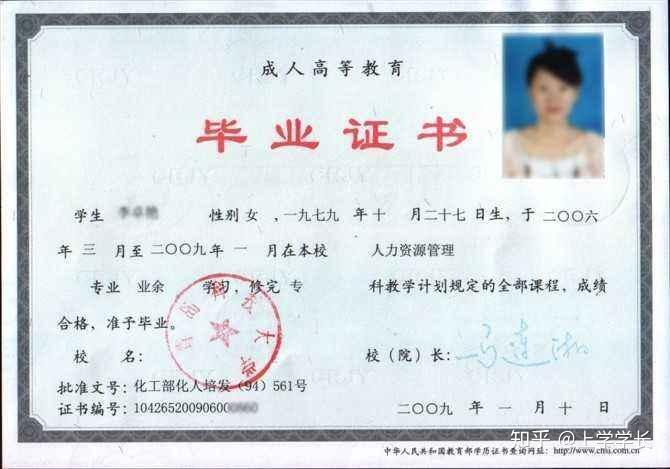 成人高等教育
毕业证书
学生 性别 女 ，一九七九 年 十 月二十七日生，于 二〇〇六
年 三 月至 二〇〇九 年 一 月在本校 人力资源管理
专业 业余 学习，修完 专 科教学计划规定的全部课程，成绩
合格，准予毕业。
青岛科技大学
校 名： 校（院）长：马连湘
批准文号：化工部化人培发（94）561号
证书编号：10426520090600
二〇〇九 年 一 月 十 日
中华人民共和国教育部学历证书查询网址：http://www.chsi.com.cn
知乎 @上学学长